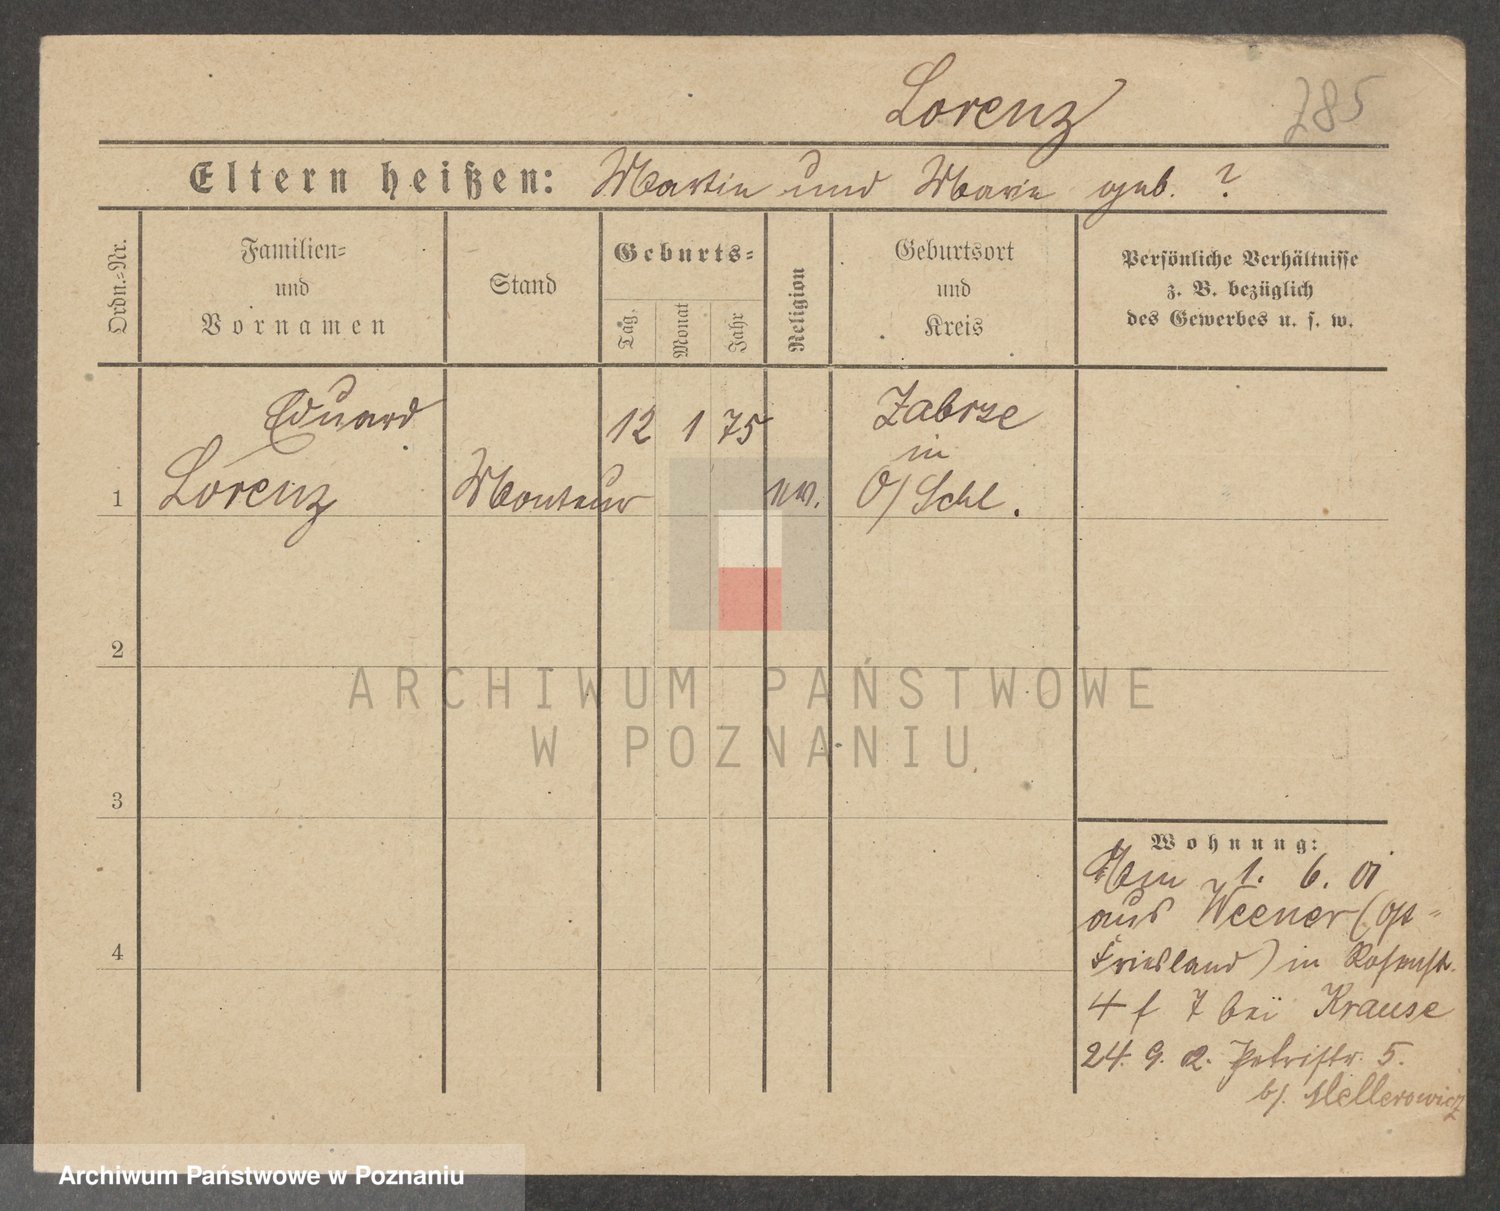 Lorenz
285
Eltern heißen: Martin und Marie geb. ?
Ordn.=Nr.
Familien=
und
Vornamen
Stand
Geburts=
Tag.
Monat
Jahr
Religion
Geburtsort
und
Kreis
Persönliche Verhältnisse
z. B. bezüglich
des Gewerbes u. s. w.
Eduard
Lorenz
Monteur
12 1 75
ev.
Zabrze
in
O/Schl.
1
2
3
4
Wohnung:
Am 1. 6. 01
aus Weener (Ost=
Friesland) in
4 bei Krause
24. 9. 2. Petristr. 5.
b/.
ARCHIWUM PAŃSTWOWE
W POZNANIU
Archiwum Państwowe w Poznaniu